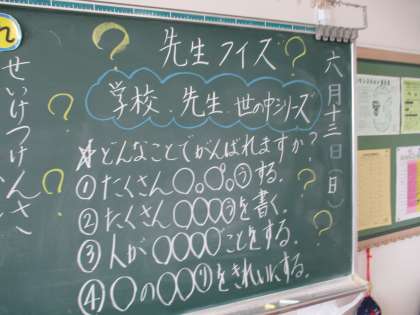 先生クイズ
学校、先生、世の中シリーズ
☆どんなことでがんばれますか？
①たくさん○。○。うする。
②たくさん○○○うを書く。
③人が○○○○ことをする。
④○の○○りをきれいにする。
六月十三日（日）
せいけつけんさ